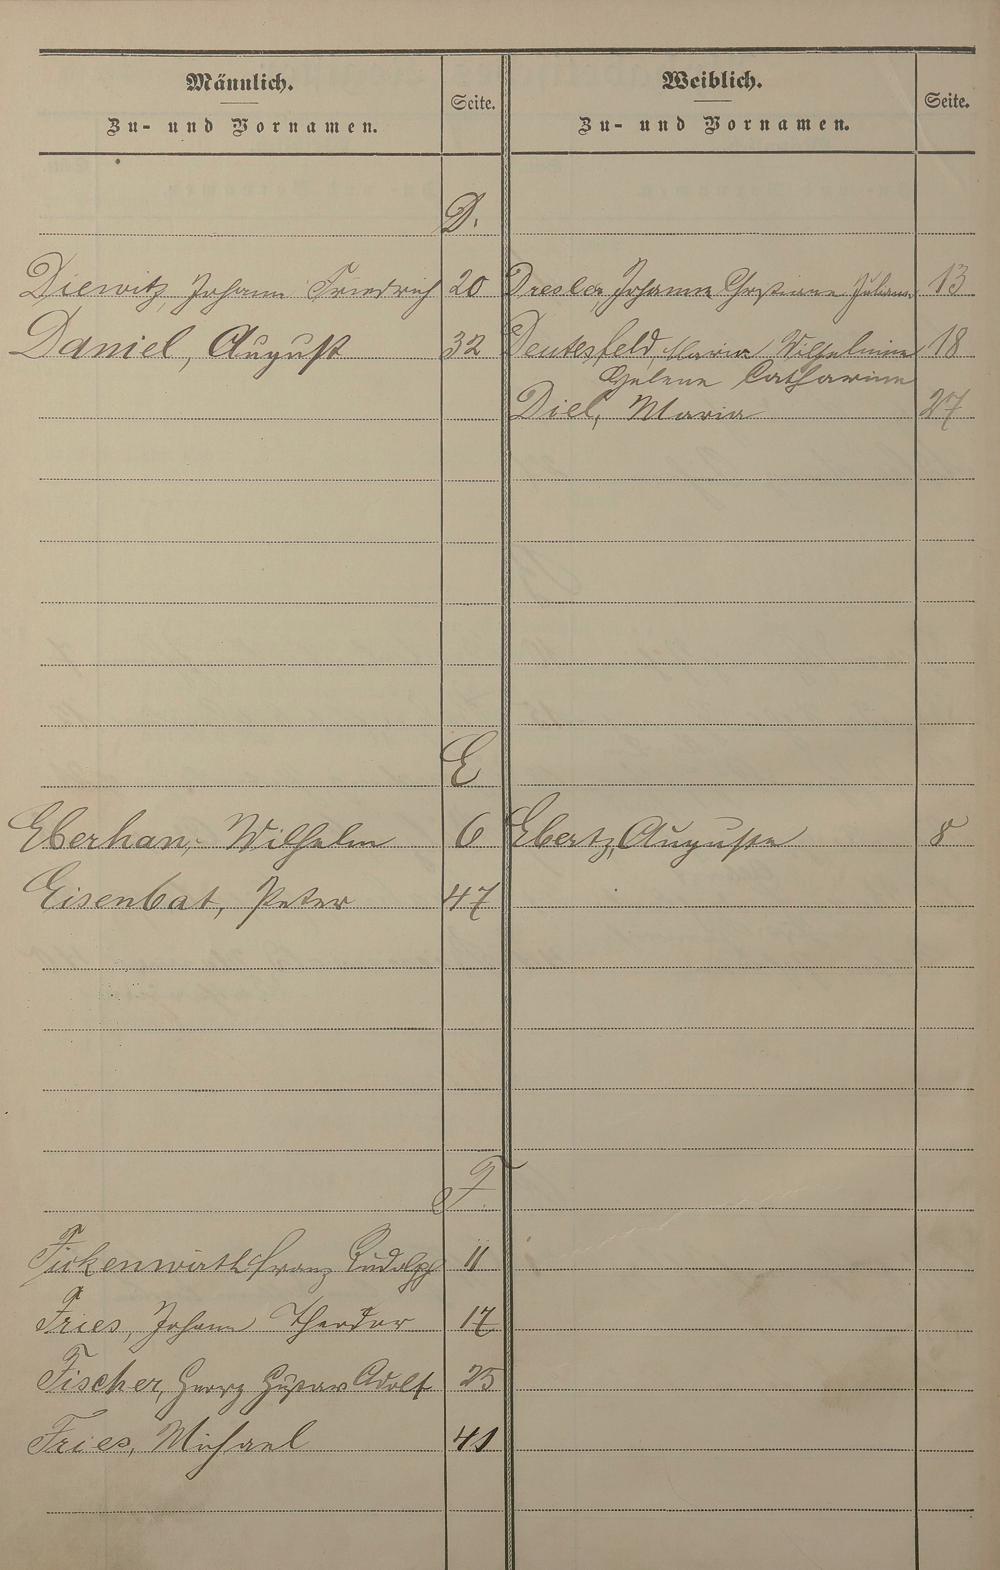 Männlich.
Zu- und Vornamen.
Seite.
Weiblich.
Zu- und Vornamen.
Seite.
D.
Diewitz, Johann Friedrich 20
Dresler, Johanne Christiane Juliane 13
Daniel, August 32
Deutesfeld, Maria Wilhelmine 18
Helene Catharine
Diel, Maria 27
E
Eberhan, Wilhelm 6
Ebertz, Auguste 8
Eisenbat, Peter 47
F
Fickenwirth Franz Rudolph 11
Fries, Johann Theodor 17
Fischer, Georg Gustav Adolf 25
Fries, Michael 41